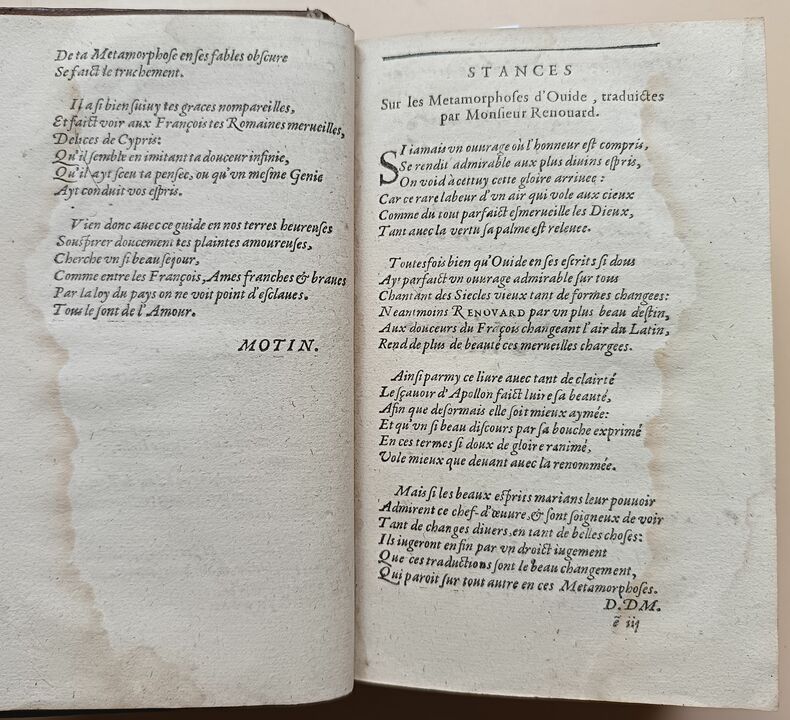 De ta Metamorphose en ses fables obscure
Se faict le truchement.
Il a si bien suiuy tes graces nompareilles,
Et faict voir aux François tes Romaines merueilles,
Delices de Cypris:
Qu'il semble en imitant ta douceur infinie,
Qu'il ayt sceu ta pensée, ou qu'vn mesme Genie
Ayt conduit vos espris.
Vien donc auec ce guide en nos terres heureuses
Souspirer doucement tes plaintes amoureuses,
Cherche vn si beau sejour,
Comme entre les François, Ames franches & braues
Par la loy du pays on ne voit point d'esclaues.
Tous le sont de l'Amour.
MOTIN.
STANCES
Sur les Metamorphoses d'Ouide, traduictes
par Monsieur Renouard.
SI iamais vn ouurage où l'honneur est compris,
Se rendit admirable aux plus diuins espris,
On void à cettuy cette gloire arriuee:
Car ce rare labeur d'vn air qui vole aux cieux
Comme du tout parfaict esmerueille les Dieux,
Tant auec la vertu sa palme est releuee.
Toutesfois bien qu'Ouide en ses escrits si dous
Ayt parfaict vn ouurage admirable sur tous
Chantant des Siecles vieux tant de formes changees:
Neantmoins RENOVARD par vn plus beau destin,
Aux douceurs du Frãçois changeant l'air du Latin,
Rend de plus de beauté ces merueilles chargees.
Ainsi parmy ce liure auec tant de clairté
Le sçauoir d'Apollon faict luire sa beauté,
Afin que desormais elle soit mieux aymée:
Et qu'vn si beau discours par sa bouche exprimé
En ces termes si doux de gloire r'animé,
Vole mieux que deuant auec la renommée.
Mais si les beaux esprits marians leur pouuoir
Admirent ce chef-d'œuure, & sont soigneux de voir
Tant de changes diuers, en tant de belles choses:
Ils iugeront en fin par vn droict iugement
Que ces traductions sont le beau changement,
Qui paroit sur tout autre en ces Metamorphoses.
D.DM.
ẽ iij